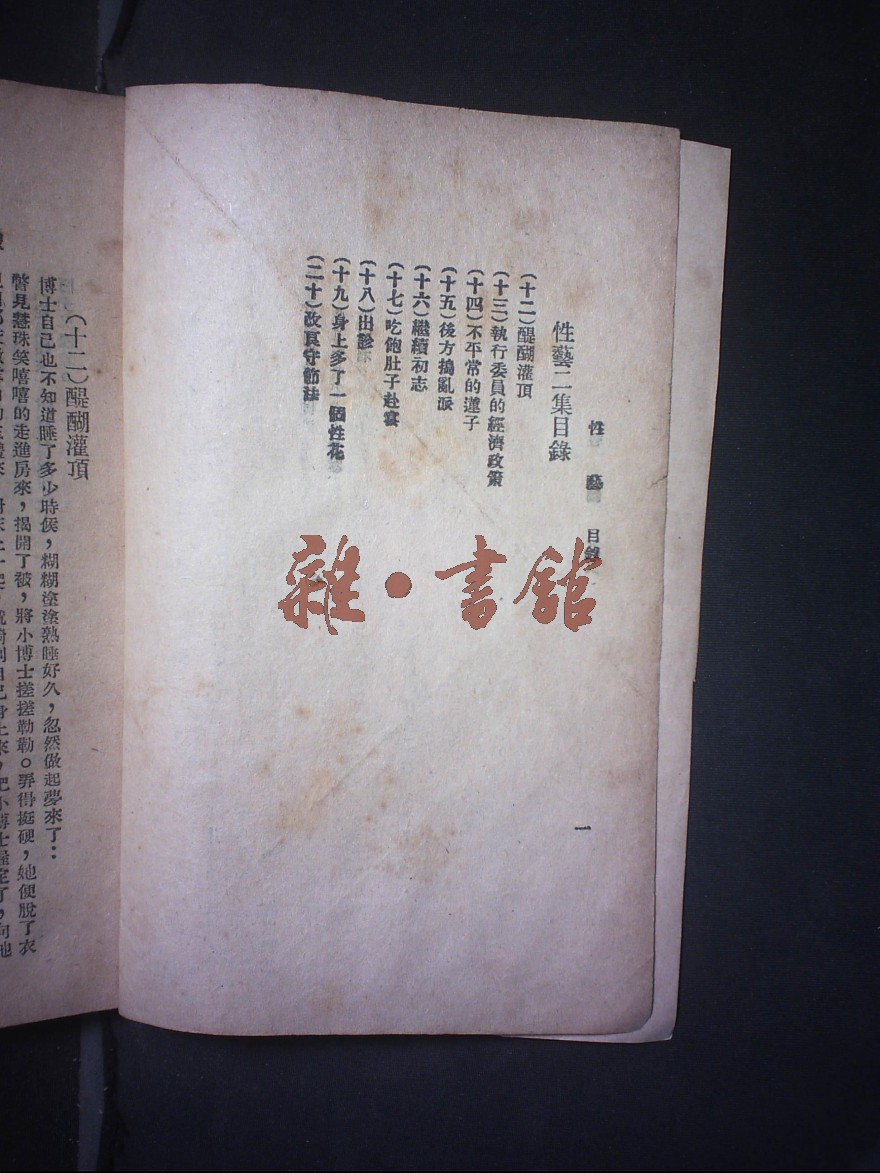 性藝 目錄 一
性藝二集目錄
(十二)醍醐灌頂
(十三)執行委員的經濟政策
(十四)不平常的蓮子
(十五)後方搗亂派
(十六)繼續初志
(十七)吃飽肚子赴宴
(十八)出診
(十九)身上多了一個性花
(二十)改良守節法
雜·書館
(十二)醍醐灌頂
博士自己也不知道睡了多少時候,糊糊塗塗熟睡好久,忽然做起夢來了:
瞥見慧珠笑嘻嘻的走進房來,揭開了被,將小博士搓搓勒勒。弄得挺硬,她便脫了衣